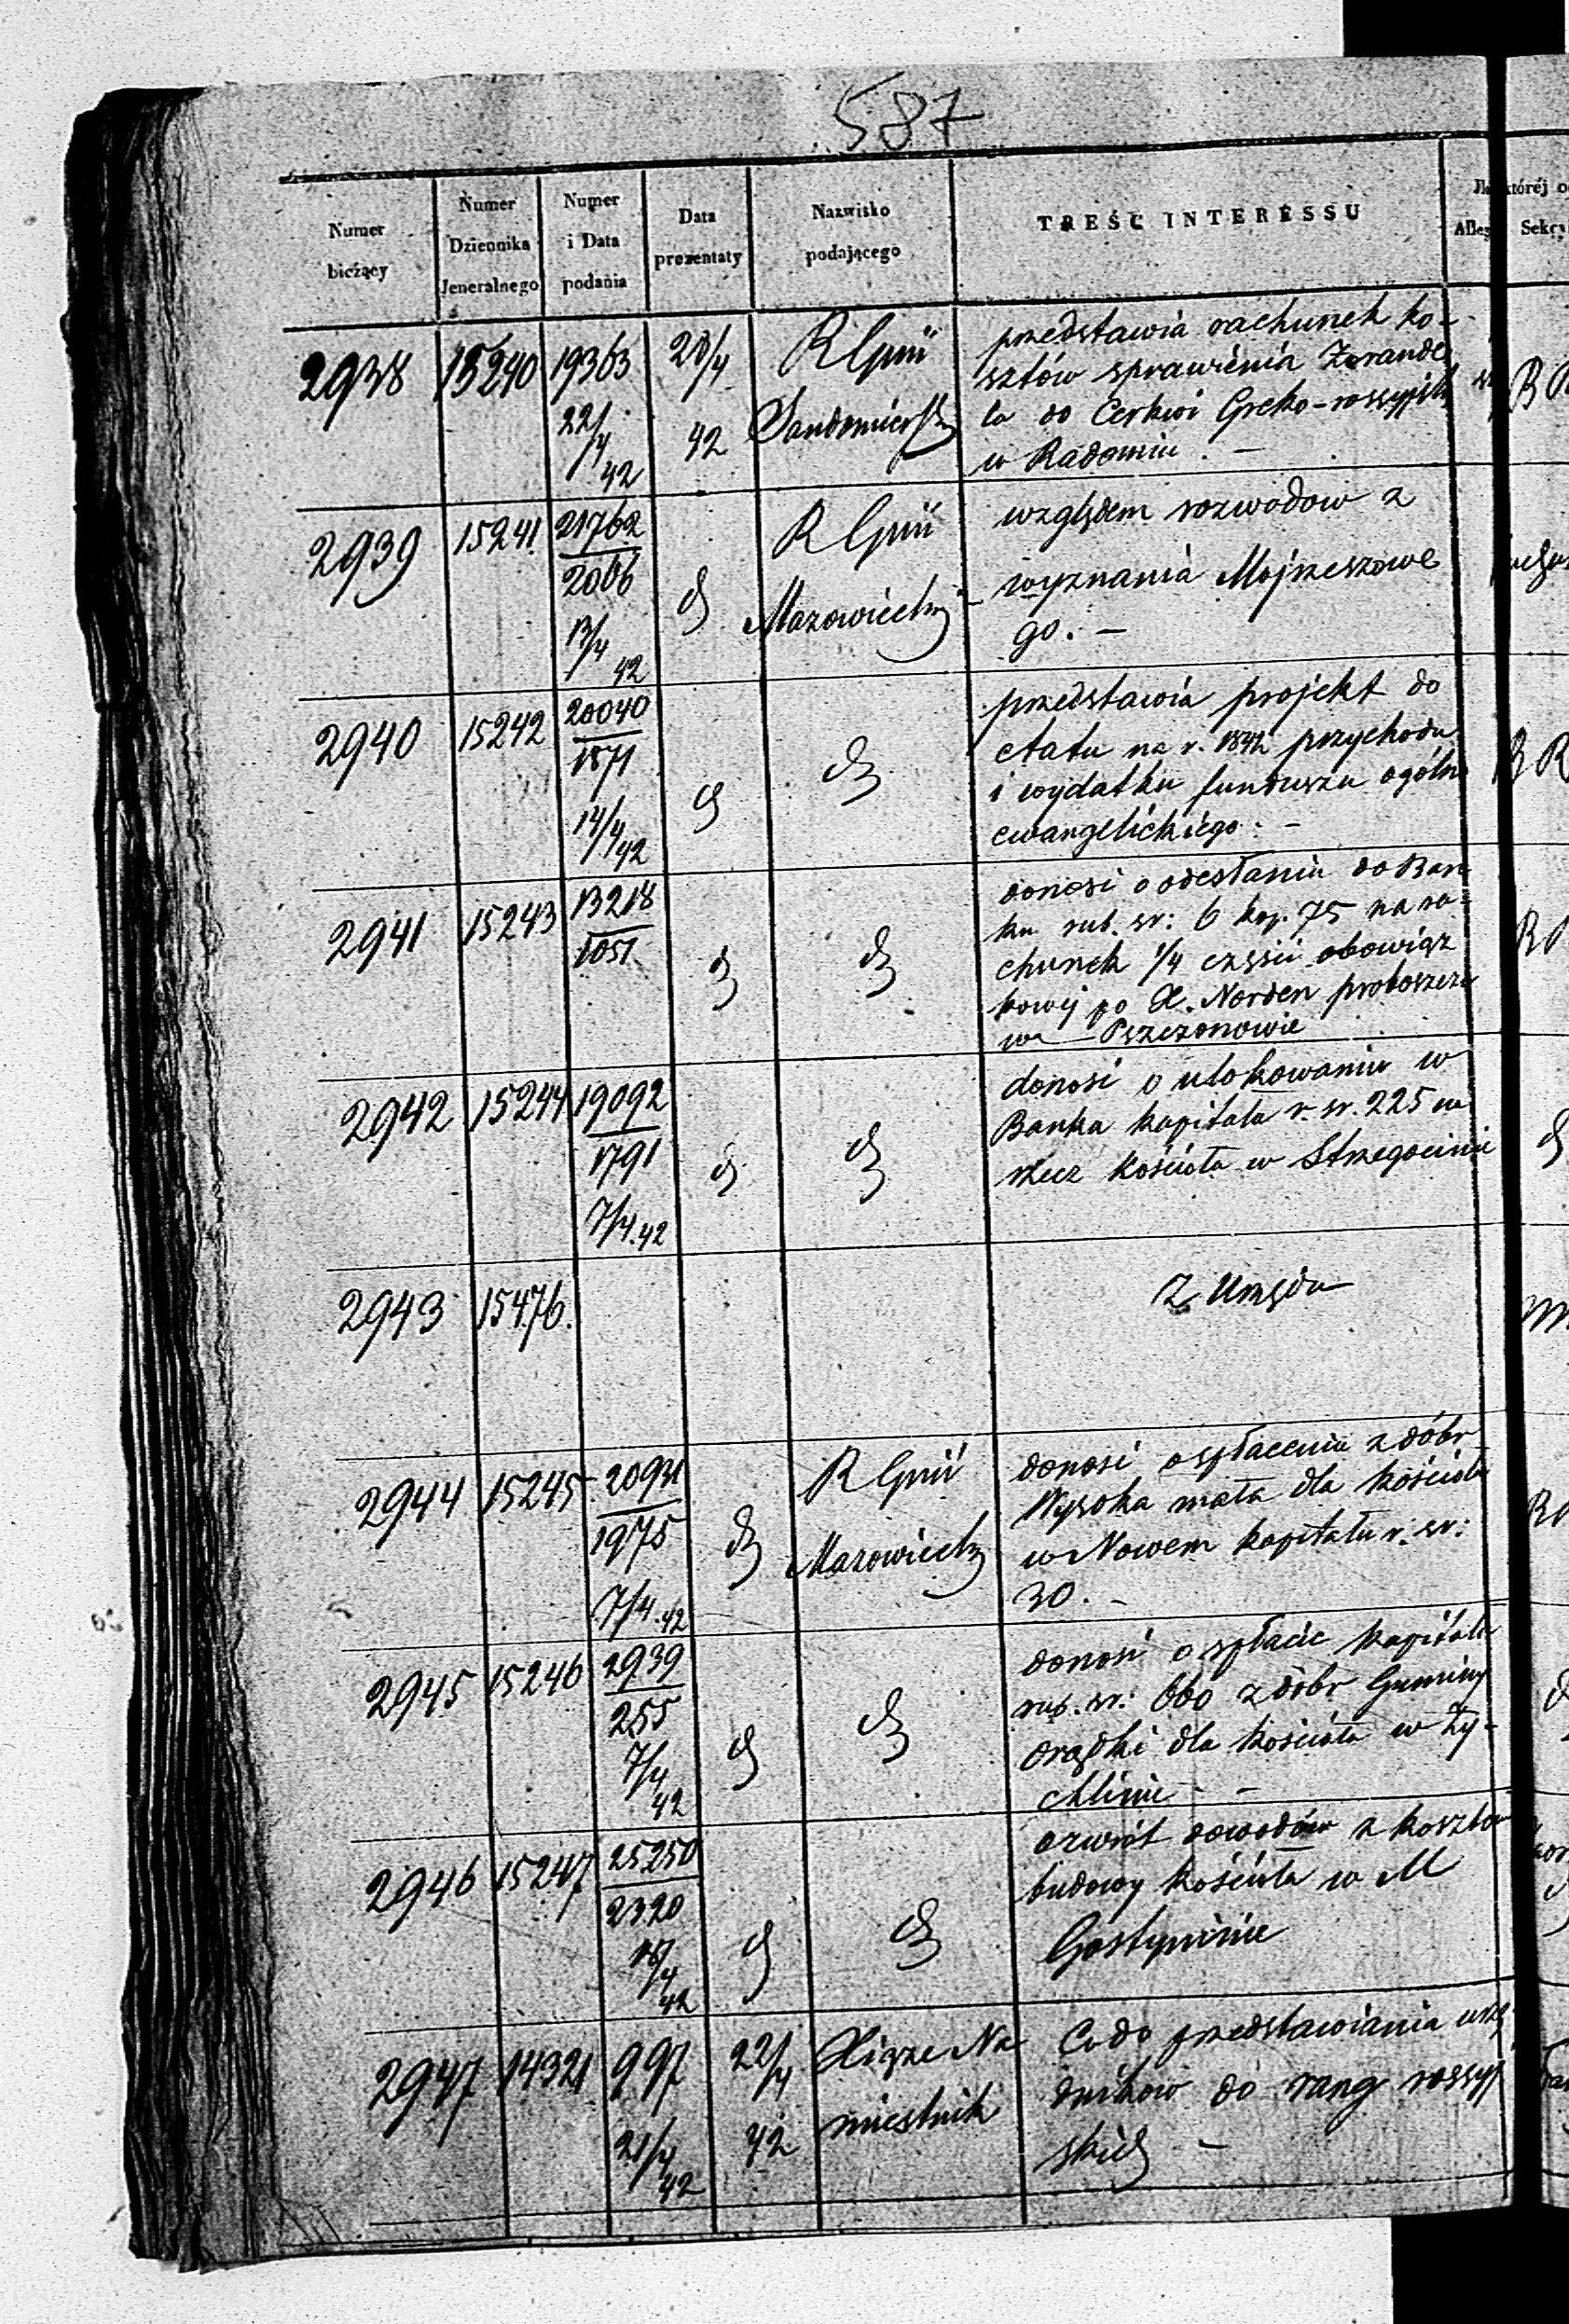 587
Numer bieżący
Numer Dziennika Jeneralnego
Numer i Data podania
Data prezentaty
Nazwisko podającego
TREŚĆ INTERESSU
2938 15240 19363 22/4 42 20/4 42 R Gpnii Sandomiersk
przedstawia rachunek ko-
sztów sprawienia Żerande
la do Cerkwi Greko-rossyjsk
w Radomiu. —
2939 15241 21762 2006 13/4 42 d R Gpnii Mazowieck
względem rozwodow z
wyznania Mojzeszowe
go. —
2940 15242 20040 1871 14/4 42 d d
przedstawia projekt do
etatu na r. 1842 przychodu
i wydatku funduszu ogóln
ewangelickiego. —
2941 15243 13218 1051 d d
donosi o odesłaniu do Ban
ku rub. sr: 6 kop. 75 na ra-
chunek 1/4 części obowiąz
kowej po X. Norden proboszczu
w Pszczonowie
2942 15244 19092 1791 7/4.42 d d
donosi o ulokowaniu w
Banku kapitału r. sr. 225 na
rzecz kościoła w Strzegocinie
2943 15476.
Z Urzędu
2944 15245 20931 1975 7/4.42 d R Gpnii Mazowieck
donosi o spłaceniu z dóbr
Wysoka mała dla kościoła
w Nowem kapitału r. sr:
30. —
2945 15246 2939 255 7/4 42 d d
donosi o spłacie kapitału
rub. sr: 660 z dóbr
dla kościoła w Ży-
chlinie —
2946 15247 25250 2320 18/4 42 d d
o zwrot dowodów z kosztów
budowy kościoła w M
Gostyninie
2947 14321 997 21/4 42 22/4 42 Xiąze Na miestnik
Co do przedstawiania urzę
dników do rang rossyj
skich —